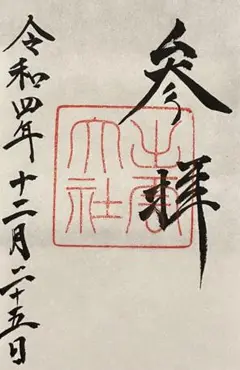 参拝
出雲大社
令和四年十二月二十五日